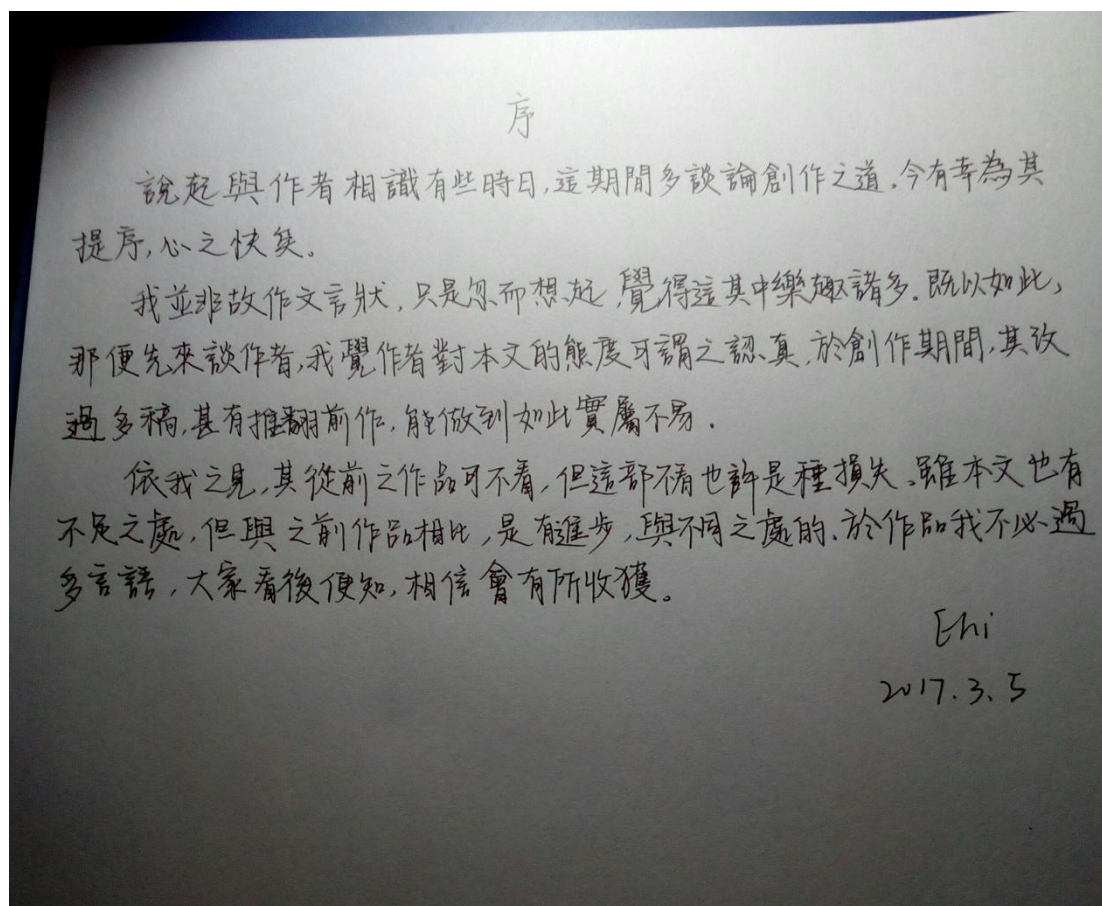 序
說起與作者相識有些時日,這期間多談論創作之道.今有幸為其
提序,心之快矣。
我並非故作文言狀,只是忽而想起,覺得這其中樂趣諸多.既以如此,
那便先來談作者,我覺作者對本文的態度可謂之認真,於創作期間,其改
過多稿,甚有推翻前作,能做到如此實屬不易.
依我之見,其從前之作品可不看,但這部不看也許是種損失.雖本文也有
不足之處,但與之前作品相比,是有進步,與不同之處的.於作品我不必過
多言語,大家看後便知,相信會有所收獲。
Ehi
2017.3.5